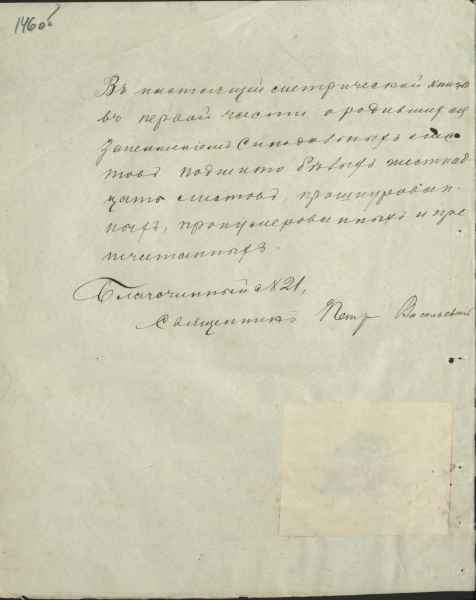 146об
Въ настоящей метрической книгѣ
въ первой части о родившихся
за неимѣніемъ Синодальныхъ лис
товъ подшито бѣлыхъ шестнад
цать листовъ, прошнурован-
ныхъ, пронумерованныхъ и при
печатанныхъ.
Благочинный № 21,
Священникъ Петръ